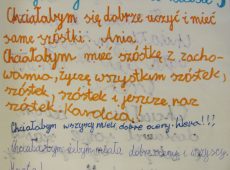 Chciałabym się dobrze uczyć i mieć
same szóstki. Ania
Chciałabym mieć szóstkę z zacho-
wania, życzę wszystkim szóstek,
szóstek, szóstek i jeszcze raz
szóstek. Karolcia
Chciałabym wszyscy mieli dobre oceny. Wera!!!,
Chciałabym żebym miała dobre oceny i wszyscy